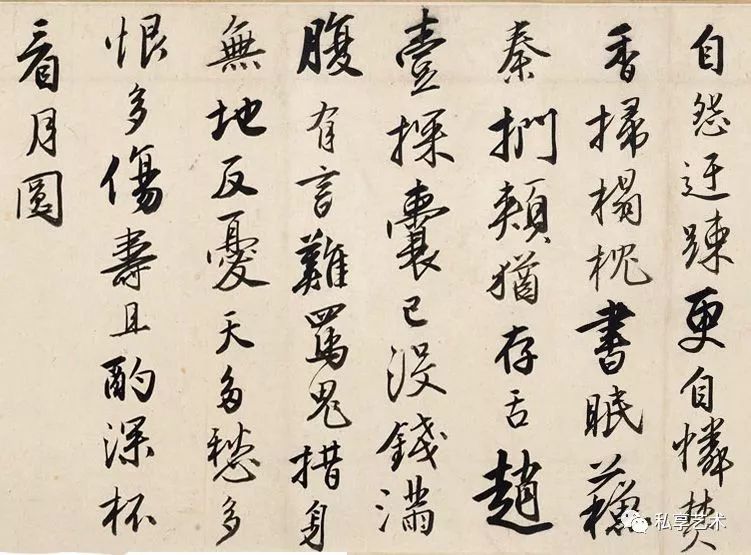 自怨迂踈更自憐焚
香掃榻枕書眠蘓
秦捫頰猶存舌趙
壹探囊已没錢滿
腹有言難罵鬼措身
無地反憂天多愁多
恨多傷壽且酌深杯
看月圓
私享艺术